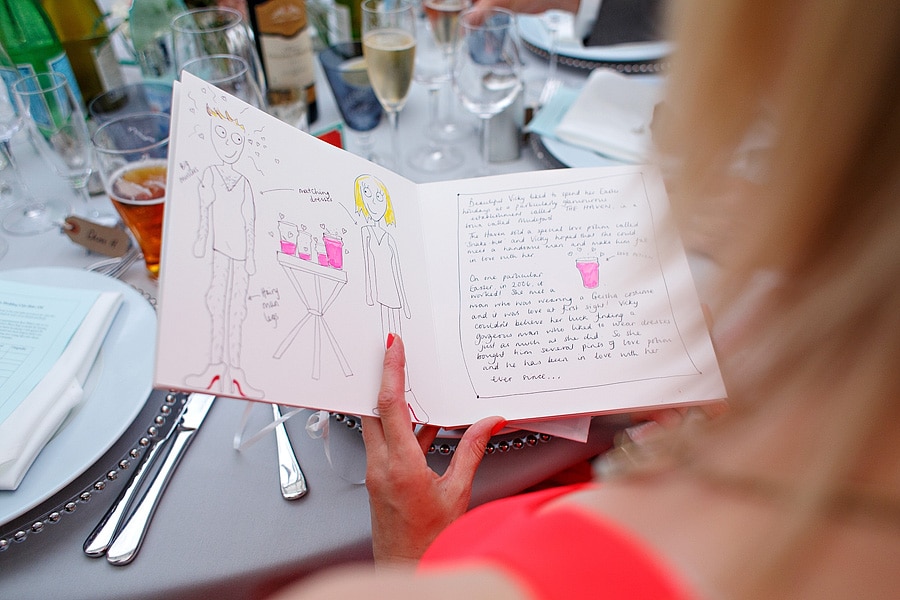 big muscles
matching
dresses
hairy
man
legs
Beautiful Vicky liked to spend her Easter
holidays at a particularly glamourous
establishment called "THE HAVEN" in a
town called
The Haven sold a special love potion called
Snake Bite and Vicky hoped that she could
meet a handsome man and make him fall
in love with her.
On one particular
Easter in 2006, it
worked! She met a
man who was wearing a Geisha costume
and it was love at first sight! Vicky
couldn't believe her luck finding a
gorgeous man who liked to wear dresses
just as much as she did. So she
bought him several pints of love potion
and he has been in love with her
ever since...